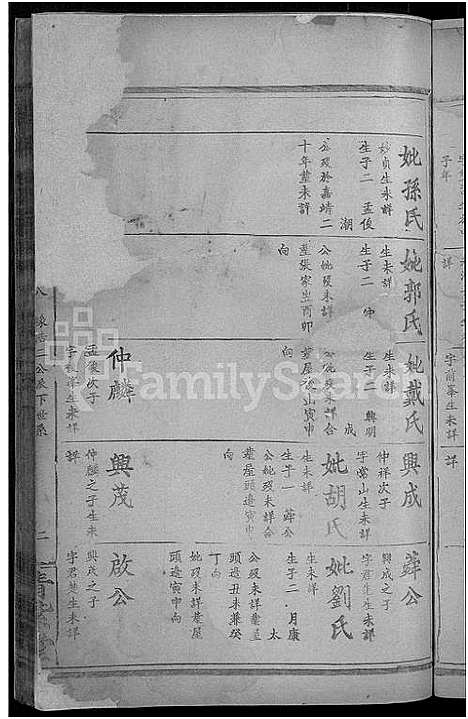 妣孫氏
妙貞生未詳
生子二 孟俊
潮
公歿於嘉靖二
十年葬未詳
妣郭氏
生未詳
生子二
公妣歿未詳
葬張家生酉卯
向
妣戴氏
生未詳
生子二 興明
成
公妣歿未詳合
葬屋後山寅申
向
仲麟
孟俊次子
字 祥生未詳
興成
仲祥次子
字常山生未詳
妣胡氏
生未詳
生子一 葬公
公妣歿未詳合
葬屋頭邊寅申
向
興茂
仲麟之子生未
詳
葬公
興成之子
字君 生未詳
妣劉氏
生未詳
生子二 月康
太
公歿未詳葬屋
頭邊丑未兼癸
丁向
妣歿未詳葬屋
頭邊寅申向
啟公
興茂之子
字君楚生未詳
八 公派下世系 二
FamilySearch